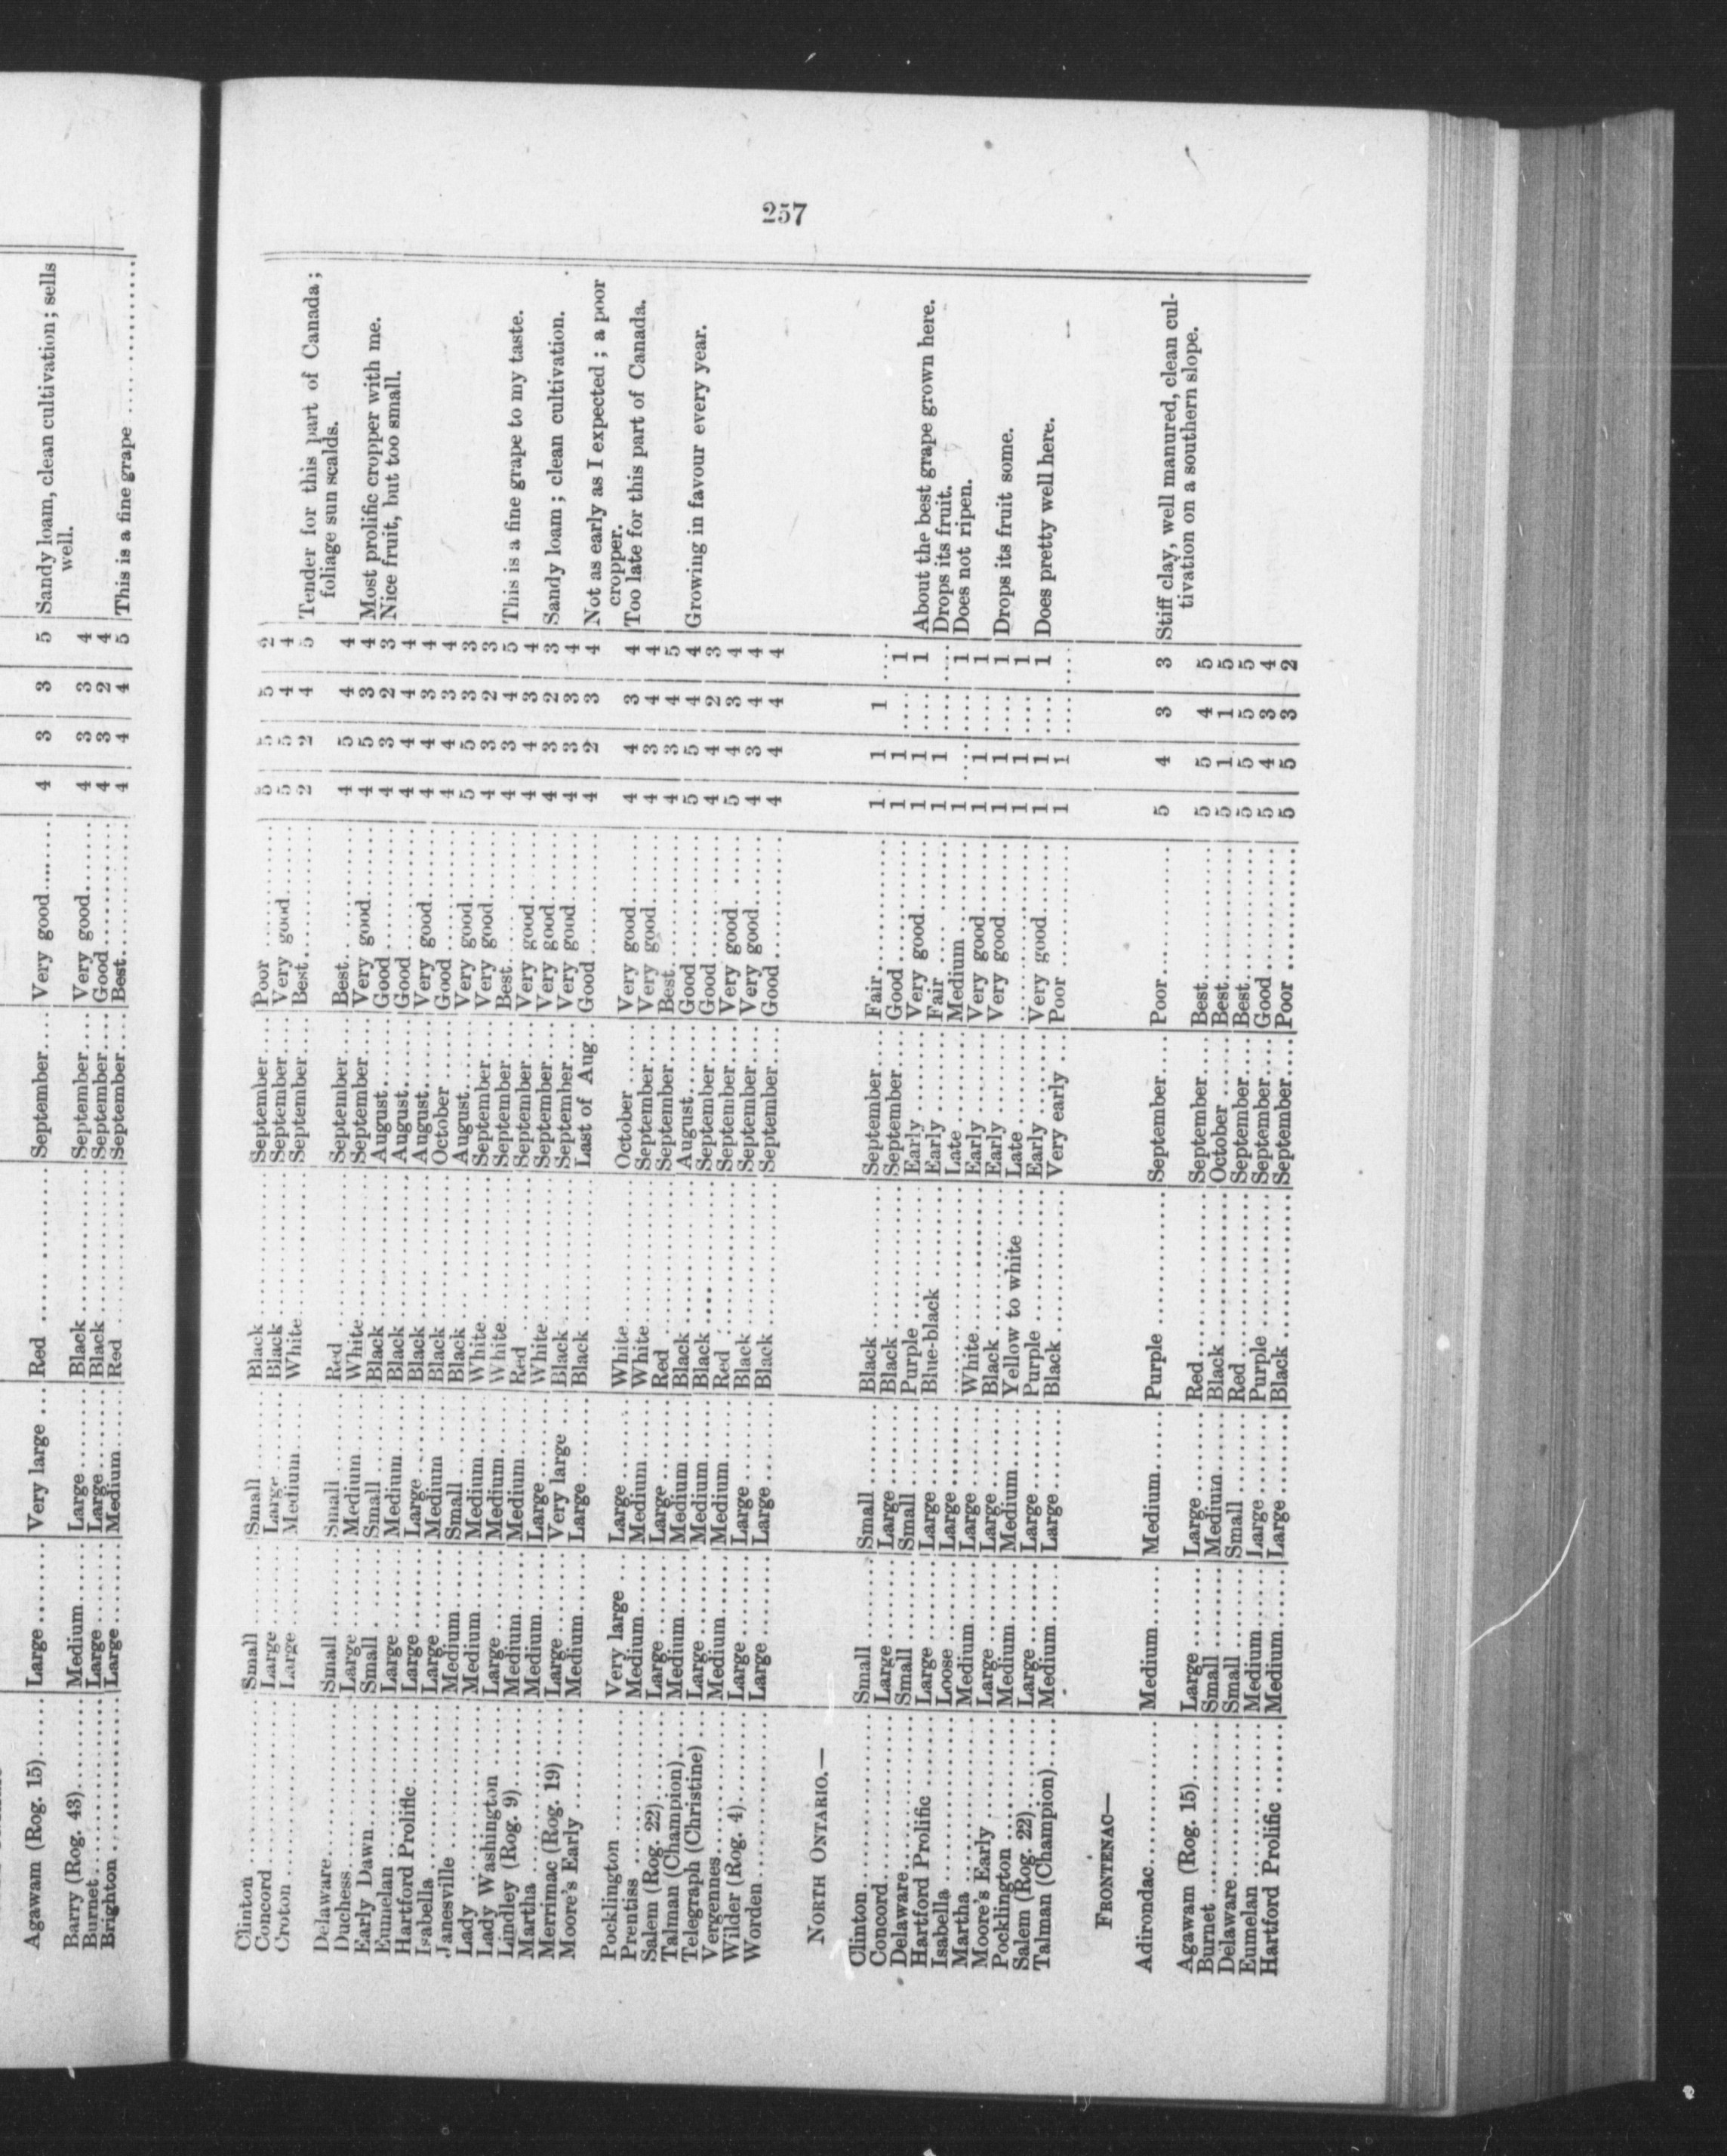 Agawam (Rog. 15)...... Large........ Very large ... Red .............. September.... Very good........ 4 3 3 5 Sandy loam, clean cultivation; sells
well.
Barry (Rog. 43)......... Medium...... Large........ Black .............. September.... Very good........ 4 3 3 4
Burnet.............. Large........ Large........ Black .............. September.... Good.......... 4 3 2 4
Brighton .............. Large........ Medium...... Red .............. September.... Best.......... 4 4 4 5 This is a fine grape ............
257
Clinton .............. Small........ Small ........ Black .............. September.... Poor .......... 5 5 5 2
Concord .............. Large........ Large........ Black .............. September.... Very good........ 5 5 4 4
Croton .............. Large........ Medium...... White.............. September.... Best.......... 2 2 4 5 Tender for this part of Canada;
foliage sun scalds.
Delaware.............. Small........ Small ........ Red .............. September.... Best.......... 4 5 4 4
Duchess.............. Large ........ Medium...... White.............. September.... Very good........ 4 5 3 4 Most prolific cropper with me.
Early Dawn.............. Small ........ Small ........ Black .............. August........ Good .......... 4 3 2 3 Nice fruit, but too small.
Eumelan .............. Large ........ Medium...... Black .............. August........ Good .......... 4 4 4 4
Hartford Prolific......... Large ........ Large........ Black .............. August........ Very good........ 4 4 3 4
Isabella .............. Large........ Medium ...... Black .............. October ...... Good .......... 4 4 3 4
Janesville .............. Medium...... Small ........ Black .............. August........ Very good........ 5 5 3 3
Lady .............. Medium...... Medium...... White.............. September.... Very good........ 4 3 2 3
Lady Washington ......... Large ........ Medium...... White.............. September.... Best.......... 4 3 4 5 This is a fine grape to my taste.
Lindley (Rog. 9)......... Medium...... Medium...... Red .............. September.... Very good........ 4 4 3 4
Martha .............. Medium...... Large ........ White.............. September.... Very good........ 4 3 2 3 Sandy loam; clean cultivation.
Merrimac (Rog. 19)...... Large........ Very large ... Black .............. September.... Very good........ 4 3 3 4
Moore's Early ......... Medium...... Large ........ Black .............. Last of Aug.. Good .......... 4 2 3 4 Not as early as I expected; a poor
cropper.
Pocklington .............. Very large ... Large ........ White.............. October ...... Very good........ 4 4 3 4 Too late for this part of Canada.
Prentiss .............. Medium...... Medium...... White.............. September.... Very good........ 4 3 4 4
Salem (Rog. 22)......... Large ........ Large ........ Red .............. September.... Best.......... 4 3 4 5
Talman (Champion)...... Medium...... Medium...... Black .............. August........ Good .......... 5 5 4 4 Growing in favour every year.
Telegraph (Christine) ... Large ........ Medium...... Black .............. September.... Good.......... 4 4 2 3
Vergennes.............. Medium...... Medium...... Red .............. September.... Very good........ 5 4 3 4
Wilder (Rog. 4)......... Large ........ Large ........ Black .............. September.... Very good........ 4 3 4 4
Worden .............. Large ........ Large ........ Black .............. September.... Good .......... 4 4 4 4
NORTH ONTARIO.—
Clinton.............. Small ........ Small ........ Black .............. September.... Fair.......... 1 1 1 ....
Concord.............. Large ........ Large ........ Black .............. September.... Good .......... 1 1 .... 1
Delaware.............. Small ........ Small ........ Purple .............. Early ........ Very good........ 1 1 .... 1 About the best grape grown here.
Hartford Prolific ...... Large ........ Large ........ Blue-black ......... Early ........ Fair .......... 1 1 .... .... Drops its fruit.
Isabella .............. Loose ........ Large ........ .............. Late ........ Medium .......... 1 .... .... 1 Does not ripen.
Martha .............. Medium...... Large ........ White.............. Early ........ Very good........ 1 1 .... 1
Moore's Early ......... Large ........ Large ........ Black .............. Early ........ Very good........ 1 1 .... 1 Drops its fruit some.
Pocklington .............. Medium...... Medium...... Yellow to white .... Late ........ .............. 1 1 .... 1
Salem (Rog. 22)......... Large ........ Large ........ Purple .............. Early ........ Very good........ 1 1 .... 1 Does pretty well here.
Talman (Champion)...... Medium...... Large ........ Black .............. Very early ... Poor .......... 1 1 .... ....
FRONTENAC—
Adirondac.............. Medium...... Medium...... Purple .............. September.... Poor.......... 5 4 3 3 Stiff clay, well manured, clean cul-
tivation on a southern slope.
Agawam (Rog. 15)...... Large ........ Large ........ Red.............. September.... Best.......... 5 5 4 5
Burnet .............. Small ........ Medium...... Black .............. October ...... Best.......... 5 1 1 5
Delaware.............. Small ........ Small ........ Red .............. September.... Best.......... 5 5 5 5
Eumelan .............. Medium...... Large ........ Purple .............. September.... Good .......... 5 4 3 4
Hartford Prolific ...... Medium...... Large ........ Black .............. September.... Poor .......... 5 5 3 2